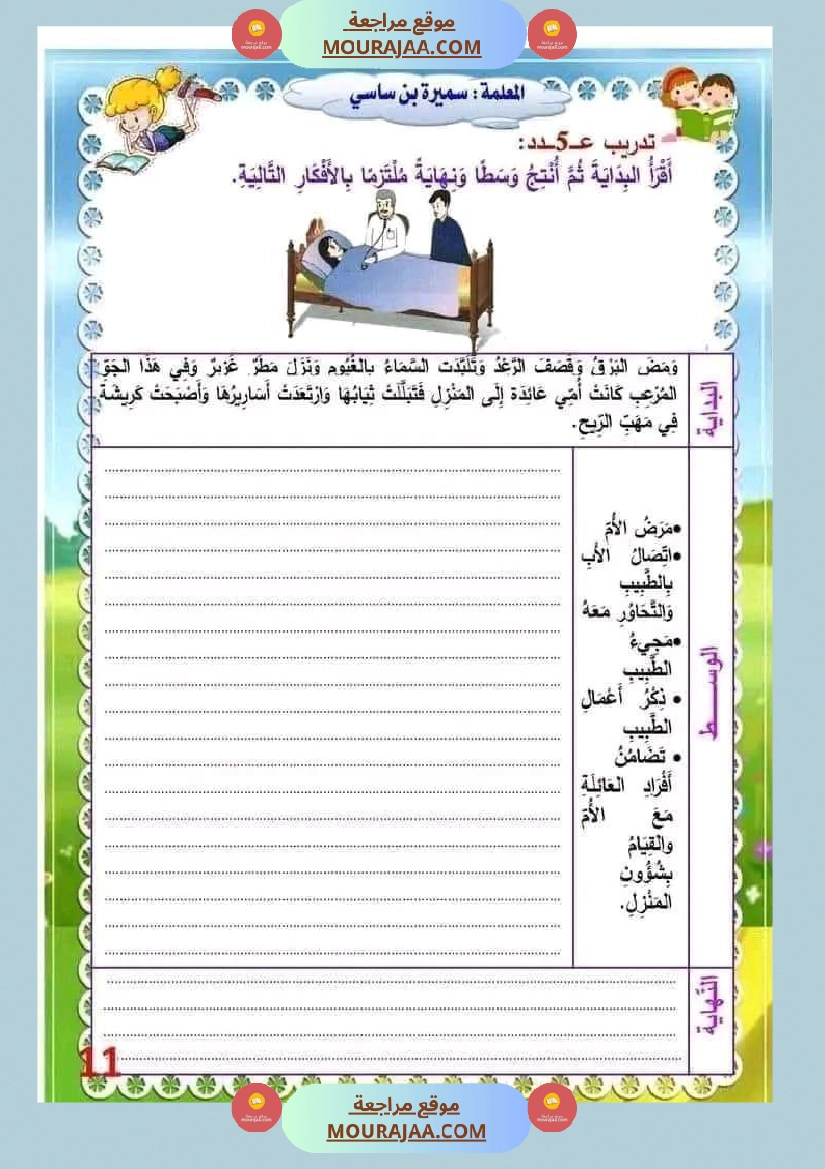 موقع مراجعة
MOURAJAA.COM
المعلمة : سميرة بن ساسي
تدريب عـ5ـدد:
أَقْرَأُ البِدَايَةَ ثُمَّ أُنْتِجُ وَسَطًا وَنِهَايَةً مُلْتَزِمًا بِالأَفْكَارِ التَّالِيَةِ.
البداية
وَمَضَ البَرْقُ وَقَصَفَ الرَّعْدُ وَتَلَبَّدَت السَّمَاءُ بِالغُيُومِ وَنَزَلَ مَطَرٌ غَزِيرٌ وَفِي هَذَا الجَوِّ
المُرْعِبِ كَانَتْ أُمِّي عَائِدَة إِلَى المَنْزِلِ فَتَبَلَّلَتْ ثِيَابُهَا وَارْتَعَدَتْ أَسَارِيرُهَا وَأَصْبَحَتْ كَرِيشَة
فِي مَهَبِّ الرِّيحِ.
الوســـط
•مَرَضُ الأُمِّ
•اتِّصَالُ الأَبِ
بِالطَّبِيبِ
وَالتَّحَاوُرِ مَعَهُ
•مَجِيءُ
الطَّبِيبِ
• ذِكْرُ أَعْمَالِ
الطَّبِيبِ
• تَضَامُنُ
أَفْرَادِ العَائِلَةِ
مَعَ الأُمِّ
وَالقِيَامُ
بِشُؤُونِ
المَنْزِلِ.
النّهاية
11
موقع مراجعة
MOURAJAA.COM